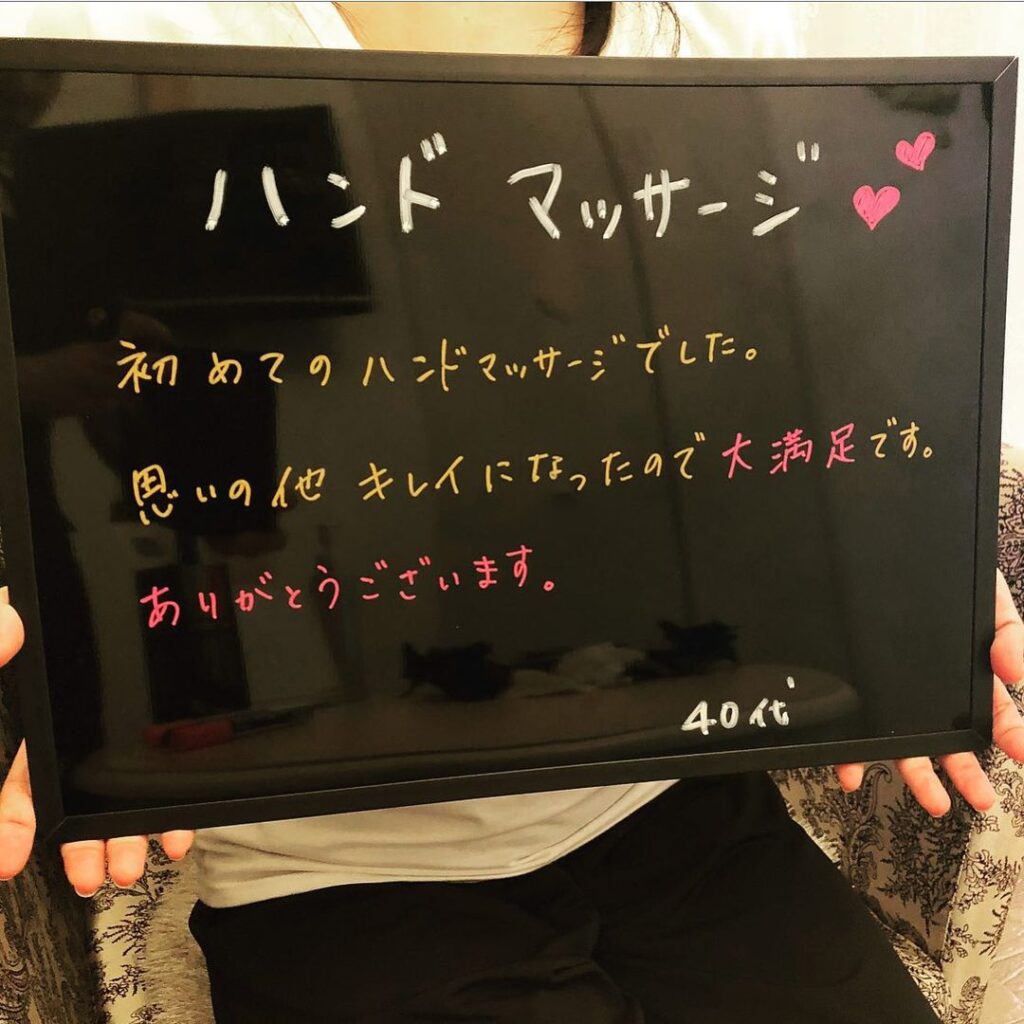 ハンド マッサージ
初めてのハンドマッサージでした。
思いの他 キレイになったので大満足です。
ありがとうございます。
40代